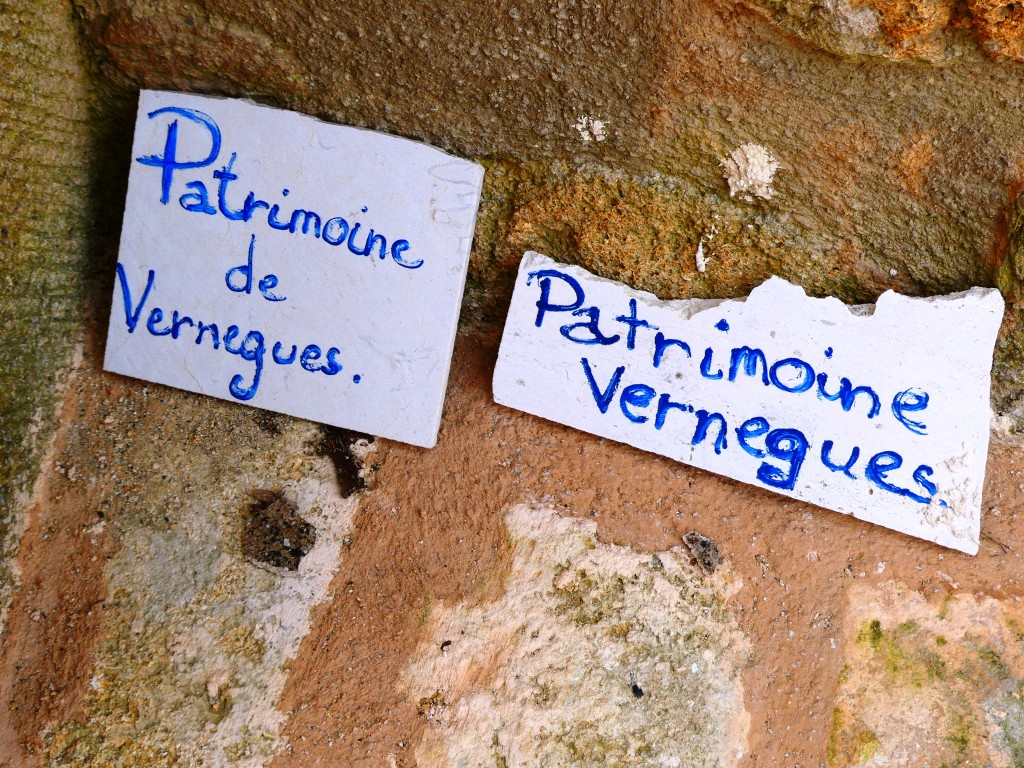 Patrimoine
de
Vernegues.
Patrimoine
Vernegues.